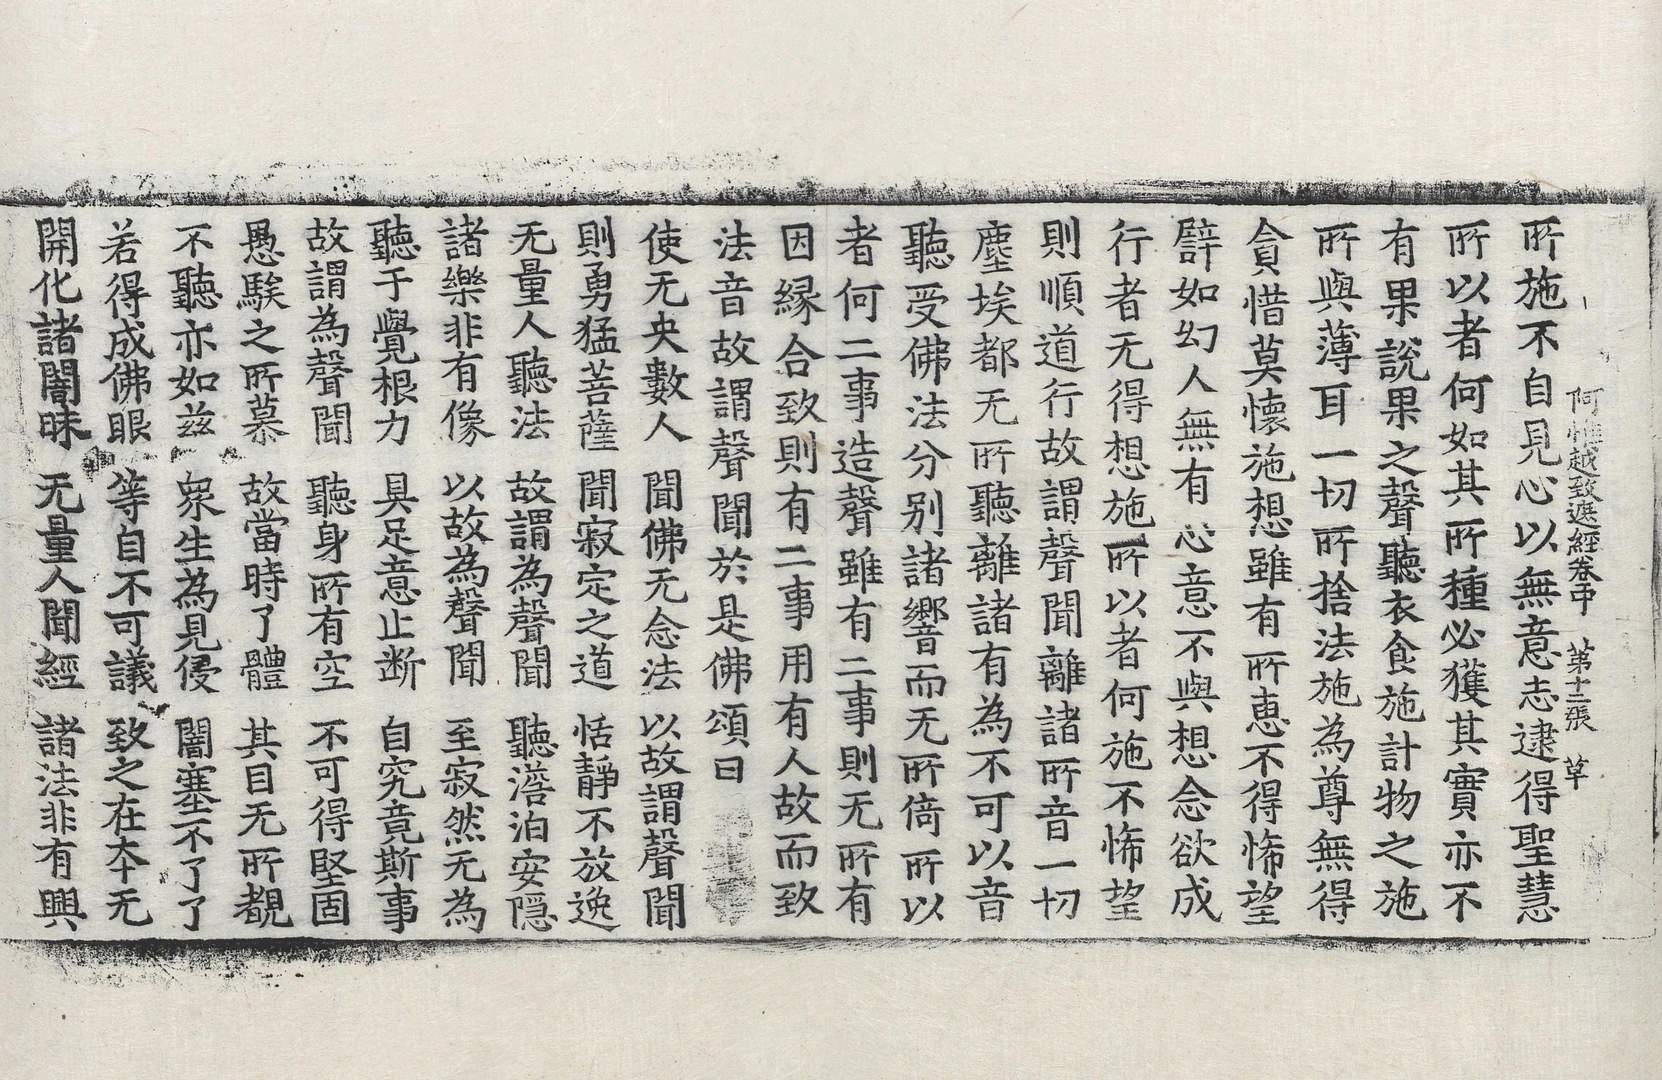 阿惟越致遮經卷中　第十二張　草
所施不自見心以無意志逮得聖慧
所以者何如其所種必獲其實亦不
有果說果之聲聽衣食施計物之施
所與薄耳一切所捨法施為尊無得
貪惜莫懷施想雖有所恵不得悕望
譬如幻人無有心意不與想念欲成
行者无得想施所以者何施不悕望
則順道行故謂聲聞離諸所音一切
塵埃都无所聽離諸有為不可以音
聽受佛法分别諸響而无所倚所以
者何二事造聲雖有二事則无所有
因緣合致則有二事用有人故而致
法音故謂聲聞於是佛頌曰
使无央數人　聞佛无念法　以故謂聲聞
則勇猛菩薩　聞寂定之道　恬靜不放逸
无量人聽法　故謂為聲聞　聽澹泊安隱
諸樂非有像　以故為聲聞　至寂然无為
聽于覺根力　具足意止断　自究竟斯事
故謂為聲聞　聽身所有空　不可得堅固
愚騃之所慕　故當時了體　其目无所覩
不聽亦如兹　衆生為見侵　闇塞不了了
若得成佛眼　等自不可議　致之在夲无
開化諸闇昧　无量人聞經　諸法非有興